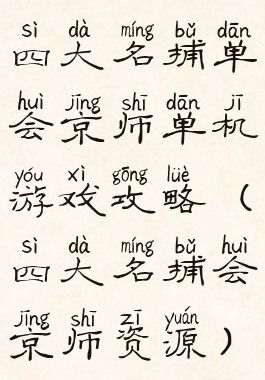 sì dà míng bǔ dān
四大名捕单
huì jīng shī dān jī
会京师单机
yóu xì gōng lüè
游戏攻略（
sì dà míng bǔ huì
四大名捕会
jīng shī zī yuán
京师资源）